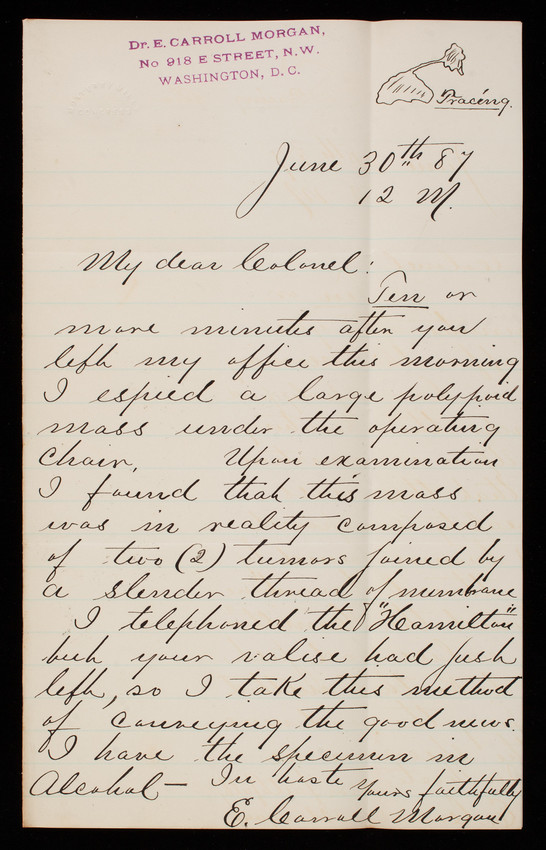 Dr. E. CARROLL MORGAN,
No 918 E STREET, N.W.
WASHINGTON, D. C.
Tracing.
June 30th 87
12 M.
My dear Colonel:
Ten or
more minutes after you
left my office this morning
I espied a large polypoid
mass under the operating
chair. Upon examination
I found that this mass
was in reality composed
of two (2) tumors joined by
a slender thread of membrane
I telephoned the "Hamilton"
but your valise had just
left, so I take this method
of conveying the good news.
I have the specimen in
Alcohol — In haste Yours faithfully
E. Carroll Morgan